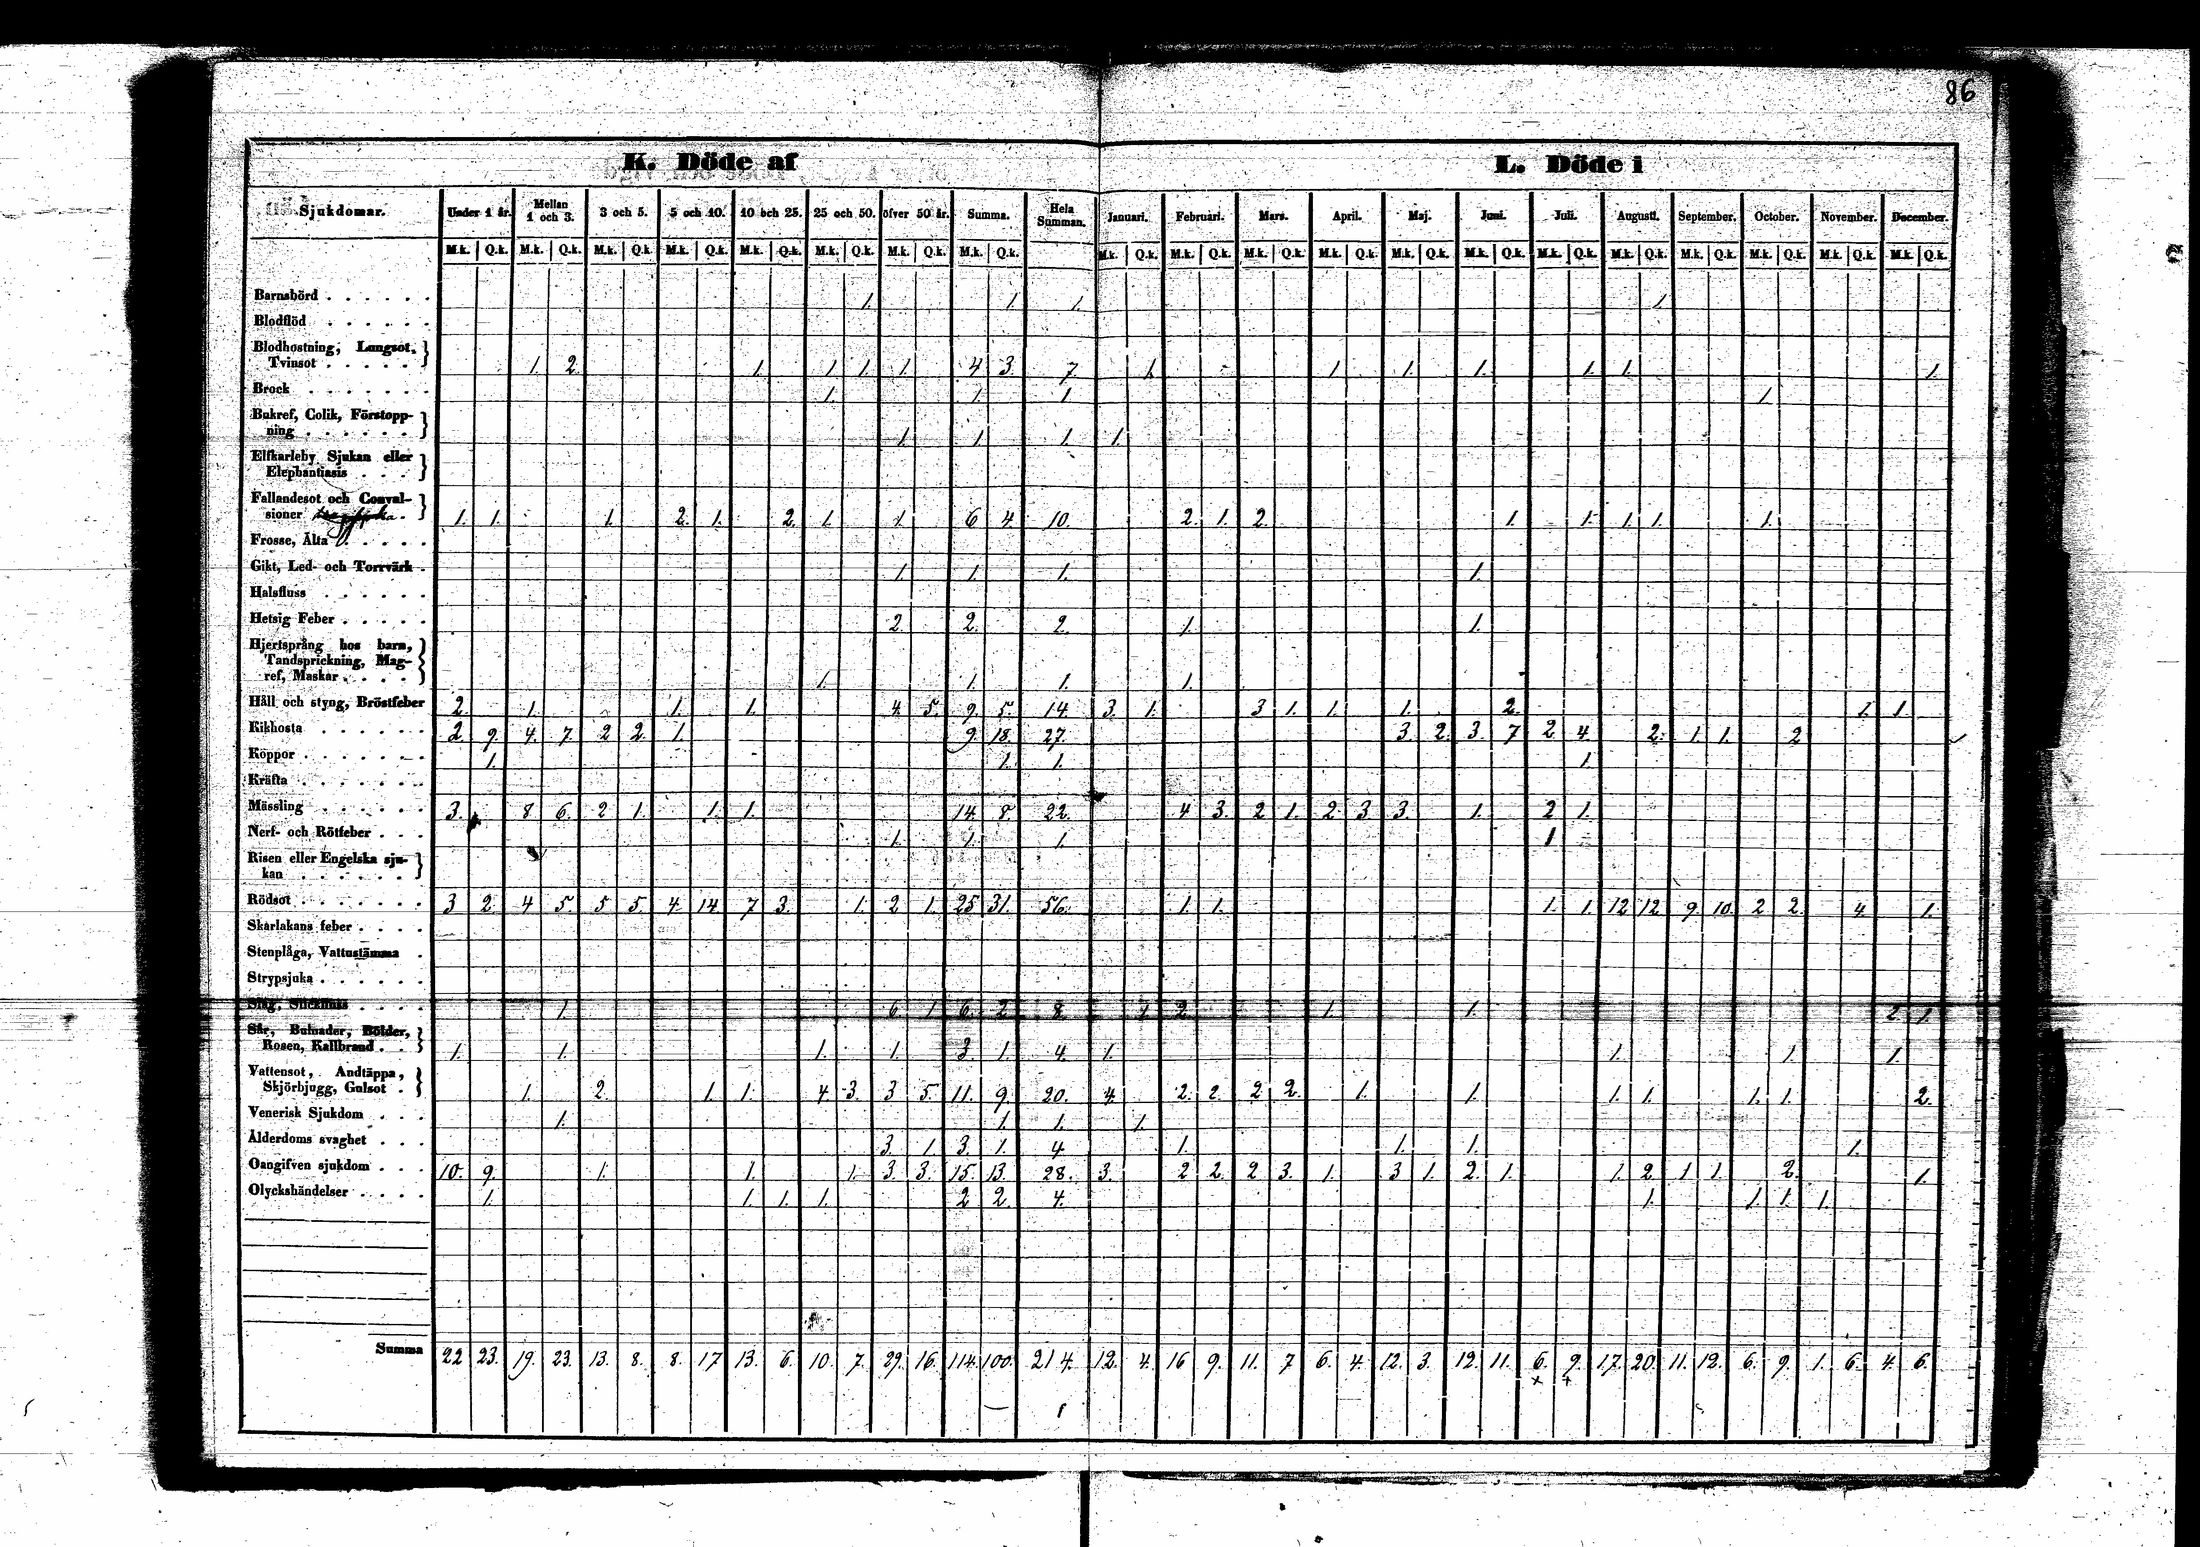 86
K. Döde af
L. Döde i
Sjukdomar. Under 1 år. Mellan 1 och 3. 3 och 5. 5 och 10. 10 och 25. 25 och 50. öfver 50 år. Summa. Hela Summan. Januari. Februari. Mars. April. Maj. Juni. Juli. Augusti. September. October. November. December.
M.k. Q.k. M.k. Q.k. M.k. Q.k. M.k. Q.k. M.k. Q.k. M.k. Q.k. M.k. Q.k. M.k. Q.k. M.k. Q.k. M.k. Q.k. M.k. Q.k. M.k. Q.k. M.k. Q.k. M.k. Q.k. M.k. Q.k. M.k. Q.k. M.k. Q.k. M.k. Q.k. M.k. Q.k. M.k. Q.k.
Barnsbörd . . . . . . 1. 1. 1. 1.
Blodflöd . . . . . .
Blodhostning, Lungsot,
Tvinsot . . . . . 1. 2. 1. 1. 1. 1. 4. 3. 7. 1. 1. 1. 1. 1. 1. 1.
Brock . . . . . . . 1. 1. 1. 1.
Bukref, Colik, Förstopp-
ning . . . . . . 1. 1. 1. 1.
Elfkarleby Sjukan eller
Elephantiasis . . .
Fallandesot och Conval-
sioner 1. 1. 1. 2. 1. 2. 1. 1. 6. 4. 10. 2. 1. 2. 1. 1. 1. 1. 1.
Frosse, Älta . . . . .
Gikt, Led- och Torrvärk . 1. 1. 1. 1.
Halsfluss . . . . . .
Hetsig Feber . . . . . 2. 2. 2. 1. 1.
Hjertsprång hos barn,
Tandsprickning, Mag-
ref, Maskar . . . . 1. 1. 1. 1.
Håll och styng, Bröstfeber 2. 1. 1. 1. 4. 5. 9. 5. 14. 3. 1. 3. 1. 1. 1. 2. 1. 1.
Kikhosta . . . . . . 2. 9. 4. 7. 2. 2. 1. 9. 18. 27. 3. 2. 3. 7 2. 4. 2. 1. 1. 2
Köppor . . . . . . . 1. 1. 1. 1.
Kräfta . . . . . . .
Mässling . . . . . . 3. 8. 6. 2. 1. 1. 1. 14. 8. 22. 4. 3. 2. 1. 2. 3. 3. 1. 2 1.
Nerf- och Rötfeber . . . 1. 1. 1. 1
Risen eller Engelska sju-
kan . . . . . .
Rödsot . . . . . . . 3 2. 4 5. 5 5. 4. 14. 7 3. 1. 2. 1. 25 31. 56. 1. 1. 1. 1. 12 12. 9. 10. 2 2. 4. 1.
Skarlakans feber . . . .
Stenplåga, Vattustämma .
Strypsjuka . . . . . .
Slag, Stickfluss . . . . 1. 6. 1. 6. 2 8. 1. 2. 1. 1. 2. 1.
Sår, Bulnader, Bölder,
Rosen, Kallbrand . . 1. 1. 1. 1. 3. 1. 4. 1. 1. 1. 1.
Vattensot, Andtäppa,
Skjörbjugg, Gulsot . 1. 2. 1. 1. 4. 3. 3 5. 11. 9. 20. 4. 2. 2. 2 2. 1. 1. 1. 1. 1. 1. 2.
Venerisk Sjukdom . . . 1. 1. 1. 1.
Ålderdoms svaghet . . . 3. 1. 3. 1. 4. 1. 1. 1. 1.
Oangifven sjukdom . . . 10. 9. 1. 1. 1. 3. 3. 15. 13. 28. 3. 2 2. 2 3. 1. 3 1. 2. 1. 1. 2. 1 1. 2. 1.
Olyckshändelser . . . . 1. 1. 1. 1. 2 2. 4. 1. 1. 1. 1.
Summa 22 23. 19. 23. 13. 8. 8. 17 13. 6. 10. 7. 29. 16. 114. 100. 214. 12. 4. 16 9. 11. 7 6. 4. 12. 3. 12. 11. 6. 9. 17. 20. 11. 12. 6. 9. 1. 6. 4. 6.